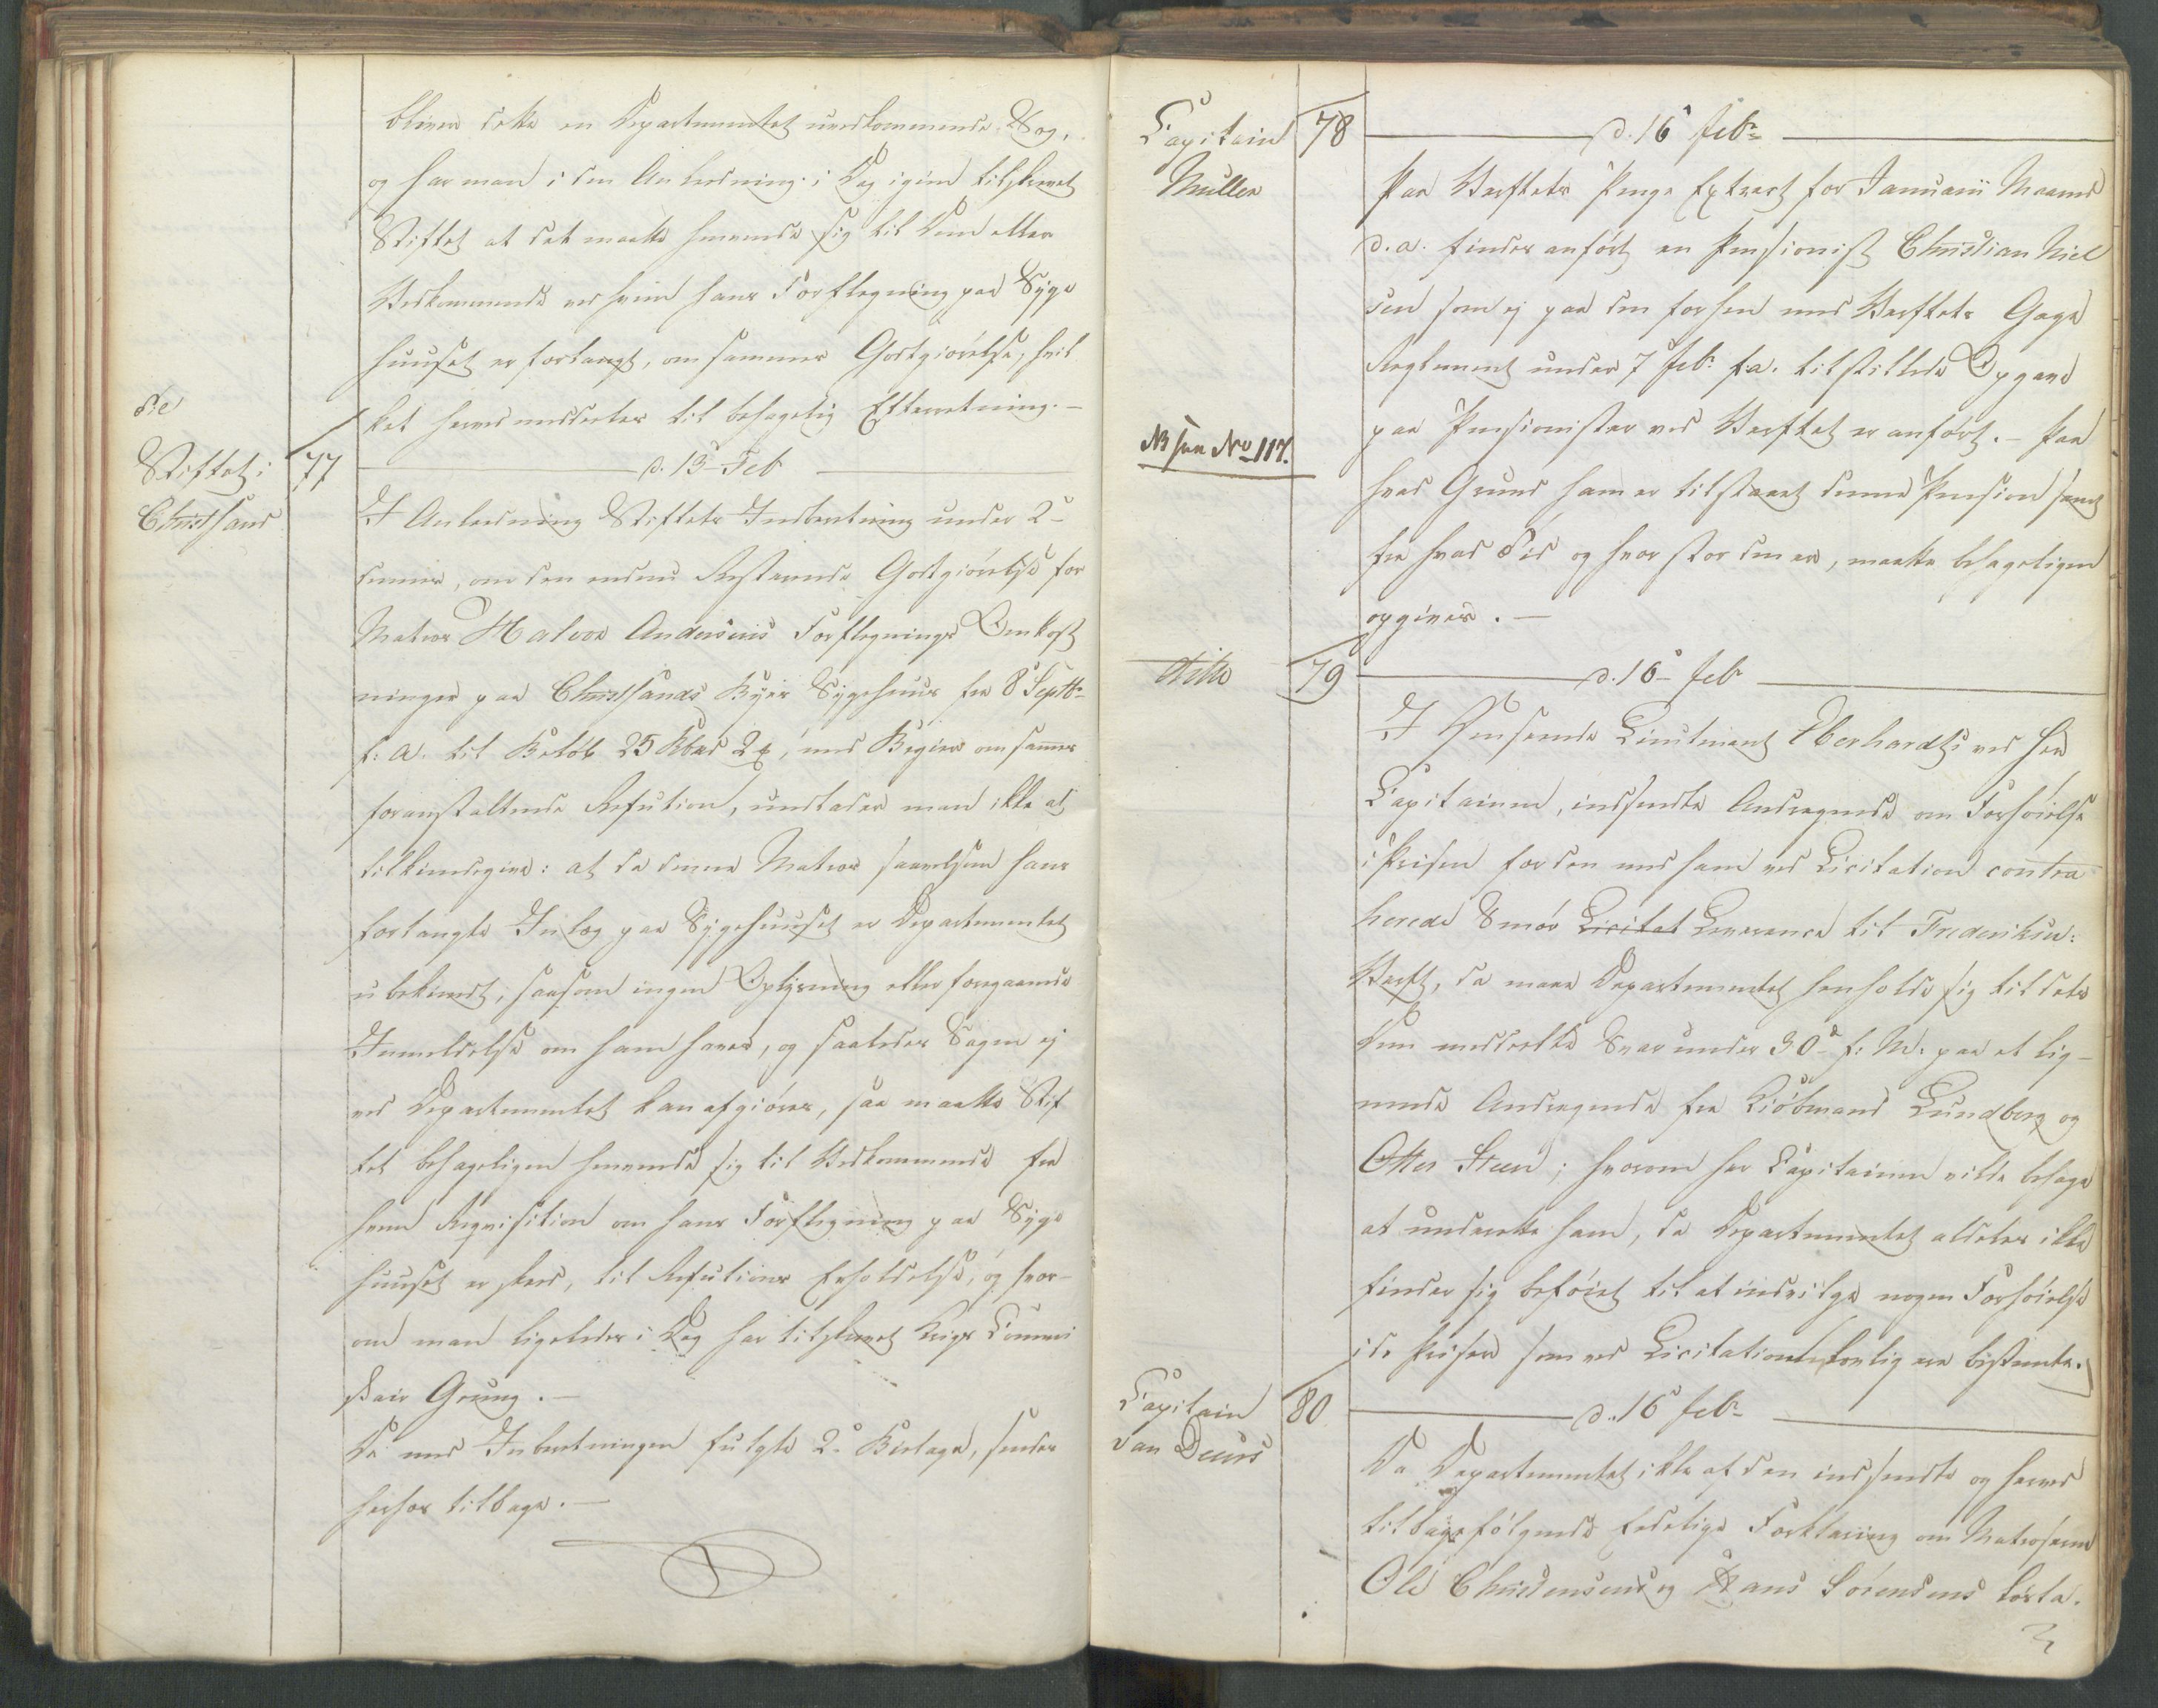 bliver dette en Departementet uvedkommende Sag,
og har man i den Anledning i Dag igien tilskrevet
Stiftet at det maatte henvende sig til Dem eller
Vedkommende ved hvem hans Forflegning paa Syge
huuset er forlangt, om sammes Godtgiörelse, hvil
ket herved meddeeles til behagelig Efterretning. –
De
Stiftet i
Christsand
77
d. 13 Feb
I Anledning Stiftets Indberetning under 2
dennes, om den endnu Resterende Godtgiörelse for
Matros Halvor Andersens Forflegnings Omkost
ninger paa Christsands Byes Sygehuus fra 8 Septbr
f: a. til Belöb 25 Rbd 2 ß, med Begier om sammes
foranstaltende Refution, undlader man ikke at
tilkiendegive: at da denne Matros saavelsom hans
forlangte Indlæg paa Sygehuuset er Departementet
ubekiendt, saasom ingen Oplysning eller foregaaende
Anmeldelse om ham haves, og saaledes Sagen ej
ved Departementet kan afgiöres, saa maatte Stif
tet behageligen henvende sig til Vedkommende fra
hvem Reqvisition om hans Forflegning paa Syge
huuset er skeed, til Refutions Erholdelse, og hvor-
om man ligeledes i Dag har tilskrevet Krigs Commi
ssair Grüng. –
De med Indberetningen fulgte 2 Bielage, sendes
herhos tilbage. –
Capitain
Müller
78
d. 16 Febr
Paa Verftets Penge Extract for Januarii Maaned
d. a. findes anfört en Pensionist Christian Niel
sen som ej paa den forhen med Verftets Gage
Reglement under 7 Febr f: a. tilstillede Opgave
paa Pensionister ved Verftet er anfört. – Paa
NB see No 117.
hvad Grund ham er tilstaaet denne Pension samt
fra hvad Tid og hvor stor den er, maatte behageligen
opgives. –
ditto
79
d. 16 Febr
I Henseende Lieutenant Eberhardts ved Her
Capitainen, indsendte Andragende om Forhöielse
i Prisen for den med ham ved Licitation contra
herede Smör Licitat Leverance til Frederiksv:
Verft, da maae Departementet henholde sig til dets
Dem meddeelte Svar under 30 f: M: paa et lig-
nende Andragende fra Kiöbmand Lundberg og
Otter Steen; hvorom Her Capitainen vilde behage
at underrette ham, da Departementet aldeles ikke
finder sig beföiet til at indvilge nogen Forhöielse
i de Priser som ved Licitation lovlig ere bestemte.
Capitain
van Deurs
80
d. 16 Febr
Da Departementet ikke af den indsendte og herved
tilbagefölgende Eedelige Forklaring om Matroserne
Ole Christensens og Hans Sörensens borta.